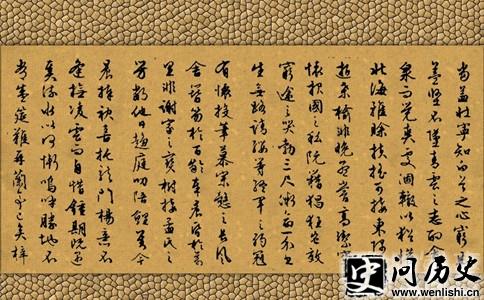 當益壯寧知白首之心窮
益堅不墜青雲之志酌
泉而覺爽處涸轍以猶
北海雖賒扶搖可接東隅
逝桑榆非晚孟嘗高潔
懷報國之心阮籍猖狂豈效
窮途之哭勃三尺微命一介書
生無路請纓等終軍之弱冠
有懷投筆慕宗愨之長風
舍簪笏於百齡奉晨昏於萬
里非謝家之寶樹接孟氏之
芳鄰他日趨庭叨陪鯉對今
晨捧袂喜托龍門楊意不
逢撫凌雲而自惜鍾期既遇
奏流水以何慚嗚呼勝地不
常盛筵難再蘭亭已矣梓
史问历史
www.wenlishi.cn